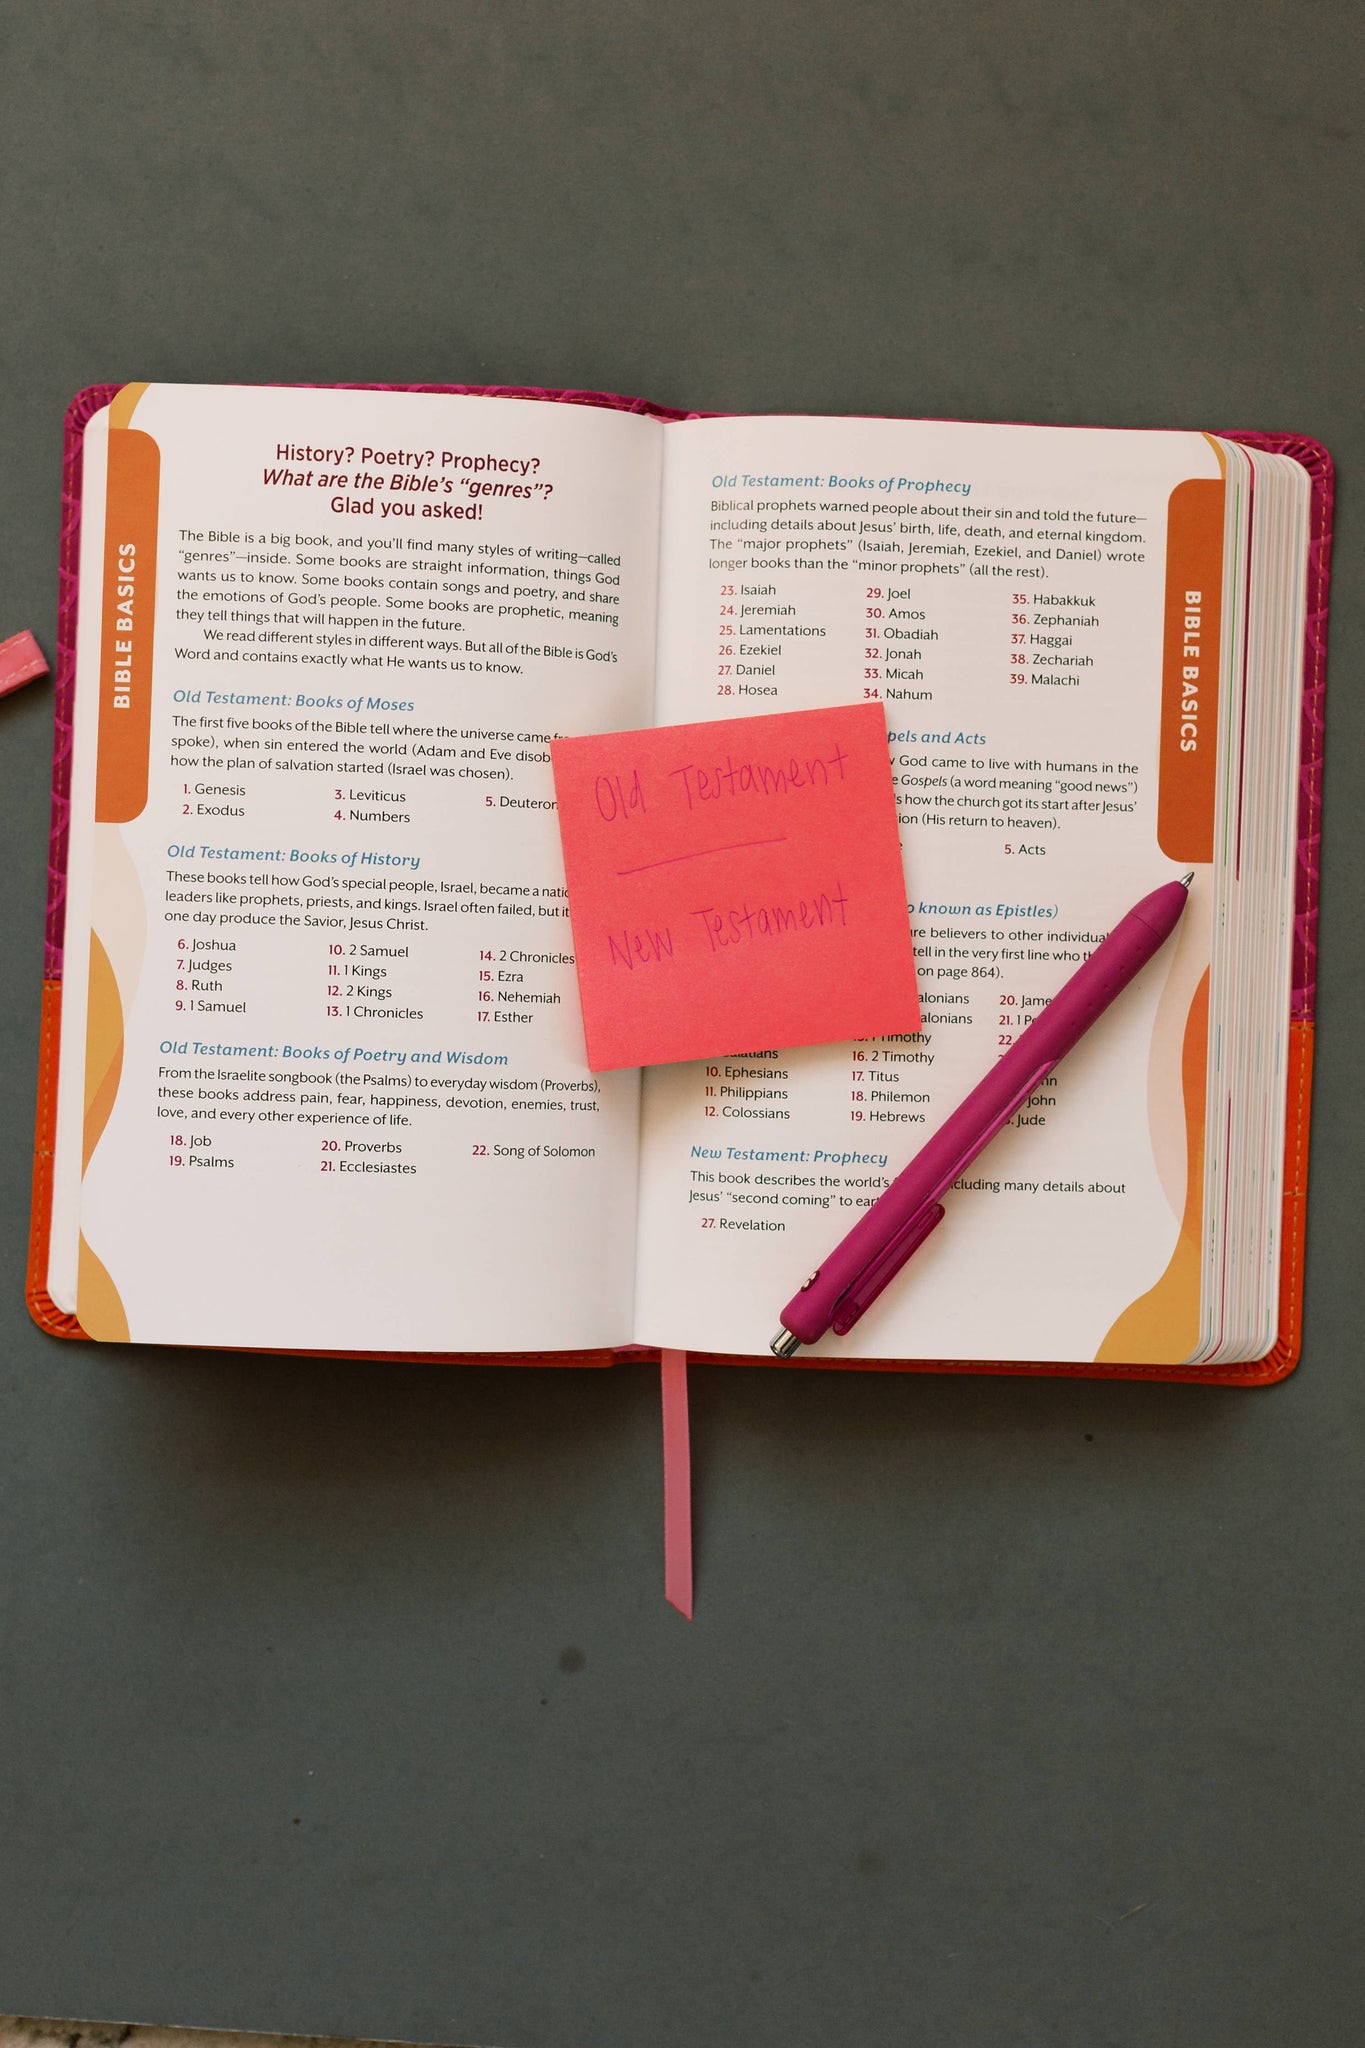 BIBLE BASICS
History? Poetry? Prophecy?
What are the Bible's "genres"?
Glad you asked!
The Bible is a big book, and you'll find many styles of writing—called
"genres"—inside. Some books are straight information, things God
wants us to know. Some books contain songs and poetry, and share
the emotions of God's people. Some books are prophetic, meaning
they tell things that will happen in the future.
We read different styles in different ways. But all of the Bible is God's
Word and contains exactly what He wants us to know.
Old Testament: Books of Moses
The first five books of the Bible tell where the universe came
spoke), when sin entered the world (Adam and Eve
how the plan of salvation started (Israel was chosen).
1. Genesis 3. Leviticus 5.
2. Exodus 4. Numbers
Old Testament: Books of History
These books tell how God's special people, Israel, became a
leaders like prophets, priests, and kings. Israel often failed, but it
one day produce the Savior, Jesus Christ.
6. Joshua 10. 2 Samuel 14. 2 Chronicles
7. Judges 11. 1 Kings 15. Ezra
8. Ruth 12. 2 Kings 16. Nehemiah
9. 1 Samuel 13. 1 Chronicles 17. Esther
Old Testament: Books of Poetry and Wisdom
From the Israelite songbook (the Psalms) to everyday wisdom (Proverbs),
these books address pain, fear, happiness, devotion, enemies, trust,
love, and every other experience of life.
18. Job 20. Proverbs 22. Song of Solomon
19. Psalms 21. Ecclesiastes
Old Testament
New Testament
Old Testament: Books of Prophecy
Biblical prophets warned people about their sin and told the future—
including details about Jesus' birth, life, death, and eternal kingdom.
The "major prophets" (Isaiah, Jeremiah, Ezekiel, and Daniel) wrote
longer books than the "minor prophets" (all the rest).
23. Isaiah 29. Joel 35. Habakkuk
24. Jeremiah 30. Amos 36. Zephaniah
25. Lamentations 31. Obadiah 37. Haggai
26. Ezekiel 32. Jonah 38. Zechariah
27. Daniel 33. Micah 39. Malachi
28. Hosea 34. Nahum
and Acts
God came to live with humans in the
Gospels (a word meaning "good news")
how the church got its start after Jesus'
(His return to heaven).
5. Acts
known as Epistles)
believers to other
tell in the very first line who
on page 864).
20.
21. 1
22.
16. 2 Timothy
10. Ephesians 17. Titus
11. Philippians 18. Philemon
12. Colossians 19. Hebrews Jude
New Testament: Prophecy
This book describes the world's including many details about
Jesus' "second coming" to
27. Revelation
BIBLE BASICS